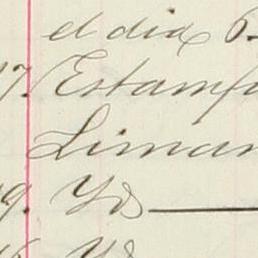 el dia 6
17. Estamp
Liman
19. Yd
Yd